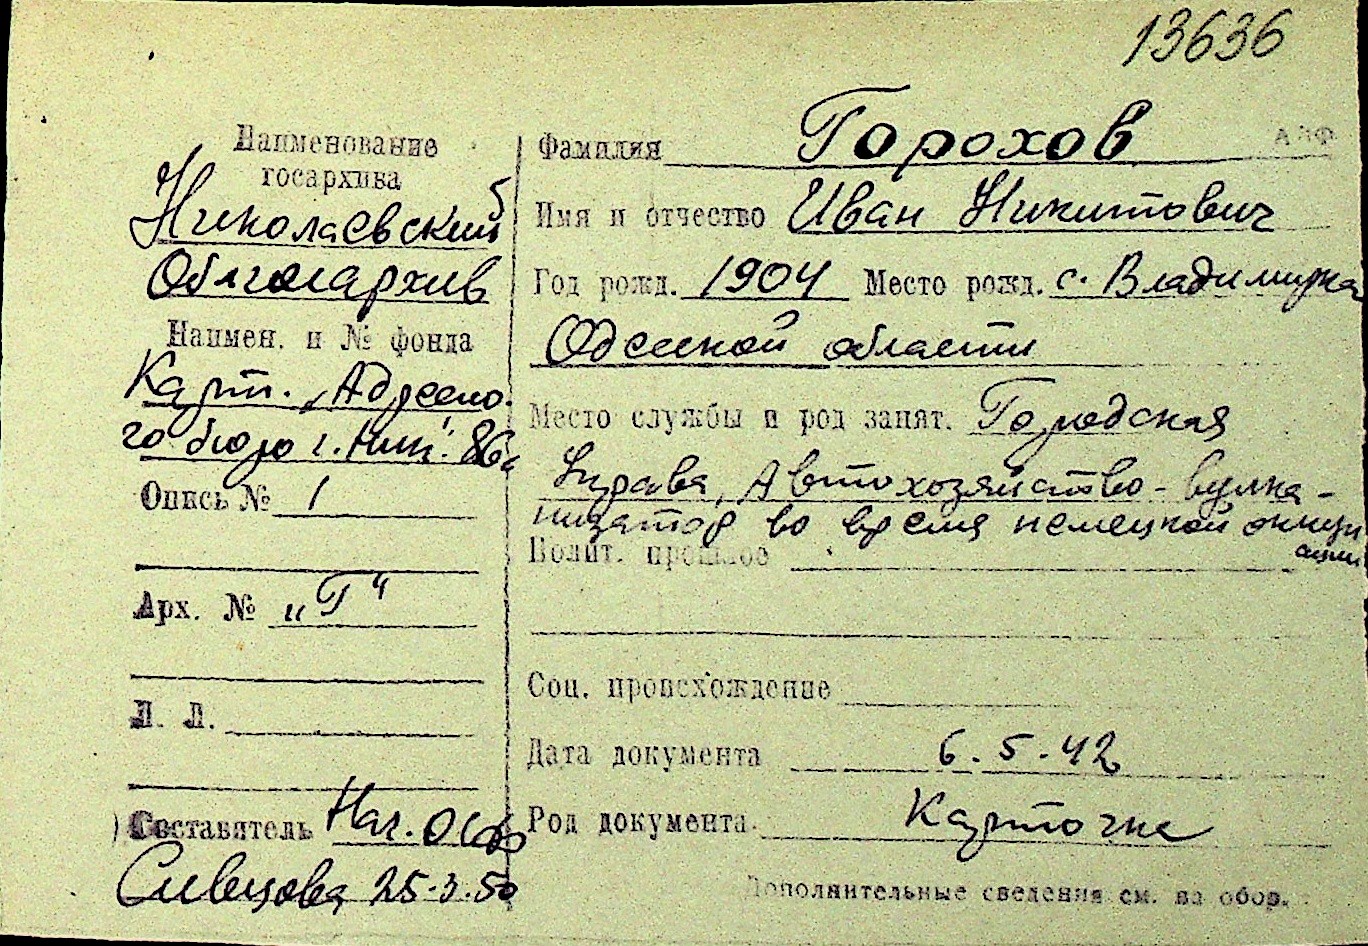 13636
Наименование
госархива
Николаевский
Облгосархив
Наимен. и № фонда
Карт. „Адресно-
го бюро г. Ник."
Опись № 1
Арх. № „Г"
Л. Л.
Составитель Нач. ОСО
Сивцова 25.3.50
Фамилия Горохов
Имя и отчество Иван Никитович
Год рожд. 1904 Место рожд. с. Владимирка
Одесской области
Место службы и род занят. Городская
Управа, Автохозяйство - вулка-
низатор во время немецкой оккуп
ации
Полит. прошлое
Соц. происхождение
Дата документа 6.5.42
Род документа. Карточка
Дополнительные сведения см. на обор.